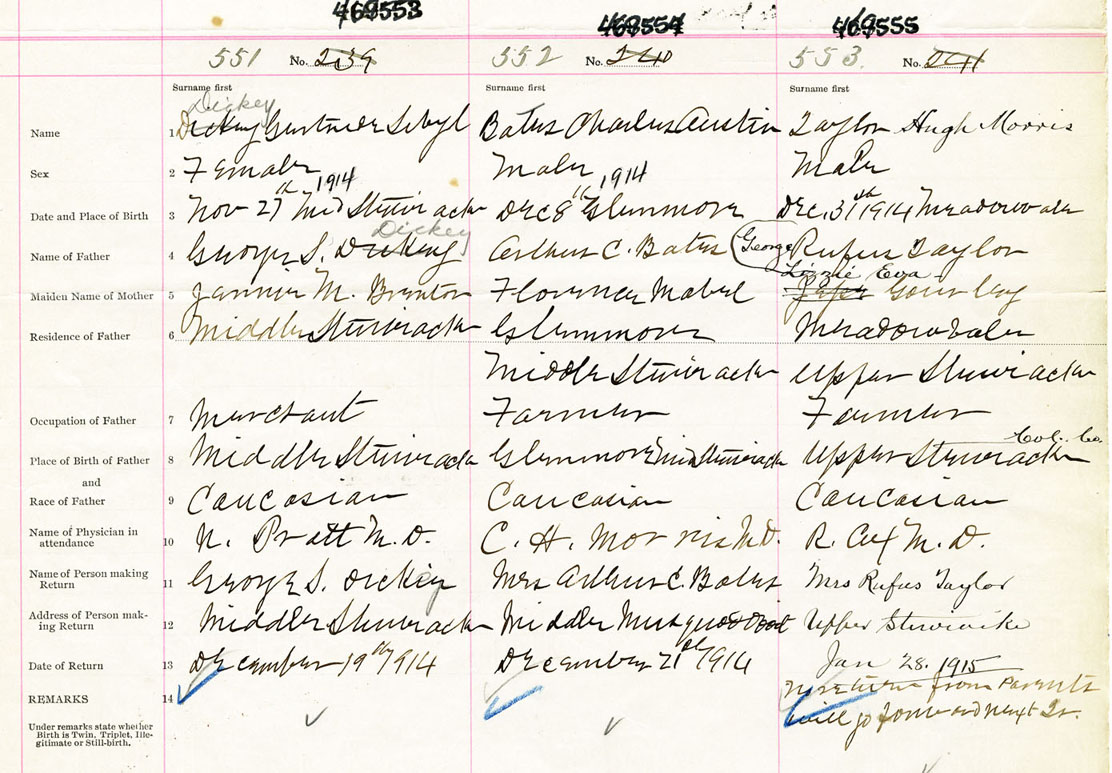 469553 469554 469555
551 No. 239 552 No. 240 553. No. 241
Surname first Surname first Surname first
Dickey
Name 1 Dickey Gertrude Sibyl Bates Charles Austin Taylor Hugh Morris
Sex 2 Female Male Male
1914 1914
Date and Place of Birth 3 Nov 27th Mid Stewiacke Dec 8th Glenmore Dec. 31th 1914 Meadowvale
Dickey
Name of Father 4 George S. Dickey Arthur C. Bates (George Rufus Taylor
Lizzie Eva
Maiden Name of Mother 5 Jennie M. Brenton Florence Mabel Gourley
Residence of Father 6 Middle Stewiacke Glenmore Meadowvale
Middle Stewiacke Upper Stewiacke
Occupation of Father 7 Merchant Farmer Farmer
Col. Co.
Place of Birth of Father 8 Middle Stewiacke Glenmore Mid Stewiacke Upper Stewiacke
and
Race of Father 9 Caucasian Caucasian Caucasian
Name of Physician in
attendance 10 N. Pratt M.D. C. H. Morris M.D. R. Cox M.D.
Name of Person making
Return 11 George S. Dickey Mrs Arthur C. Bates Mrs Rufus Taylor
Address of Person mak-
ing Return 12 Middle Stewiacke Middle Musquodoboit Upper Stewiacke
Date of Return 13 December 19th 1914 December 21st 1914 Jan 28. 1915
REMARKS 14 no return from Parents
will go forward next Qr.
Under remarks state whether
Birth is Twin, Triplet, Ille-
gitimate or Still-birth.